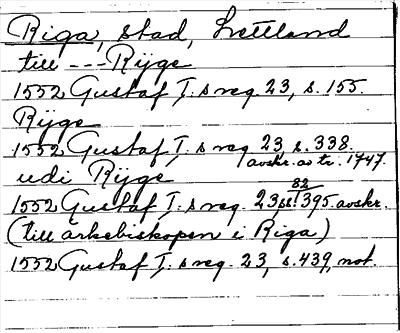 Riga, stad, Lettland
till --- Rijge
1552 Gustaf I:s reg. 23, s. 155.
Rijge
1552 Gustaf I:s reg 23 s. 338.
avskr. av tr. 1747.
udi Rijge
82
1552 Gustaf I:s reg. 23 s. 395. avskr.
(till ärkebiskopen i Riga)
1552 Gustaf I:s reg. 23, s. 439, not.